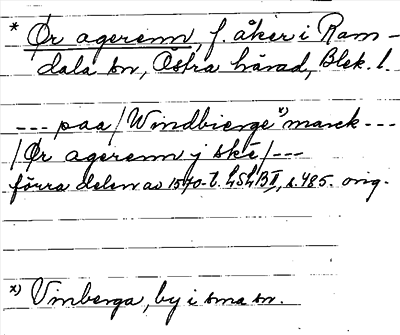 * Ør agerenn, f. åker i Ram-
dala sn, Östra härad, Blek. l.
--- paa / Windbierge x) marck ---
/ Ør agerenn j skE / ---
förra delen av 1570-t. LSLBII, s. 485. orig.
x) Vinberga, by i sma sn.